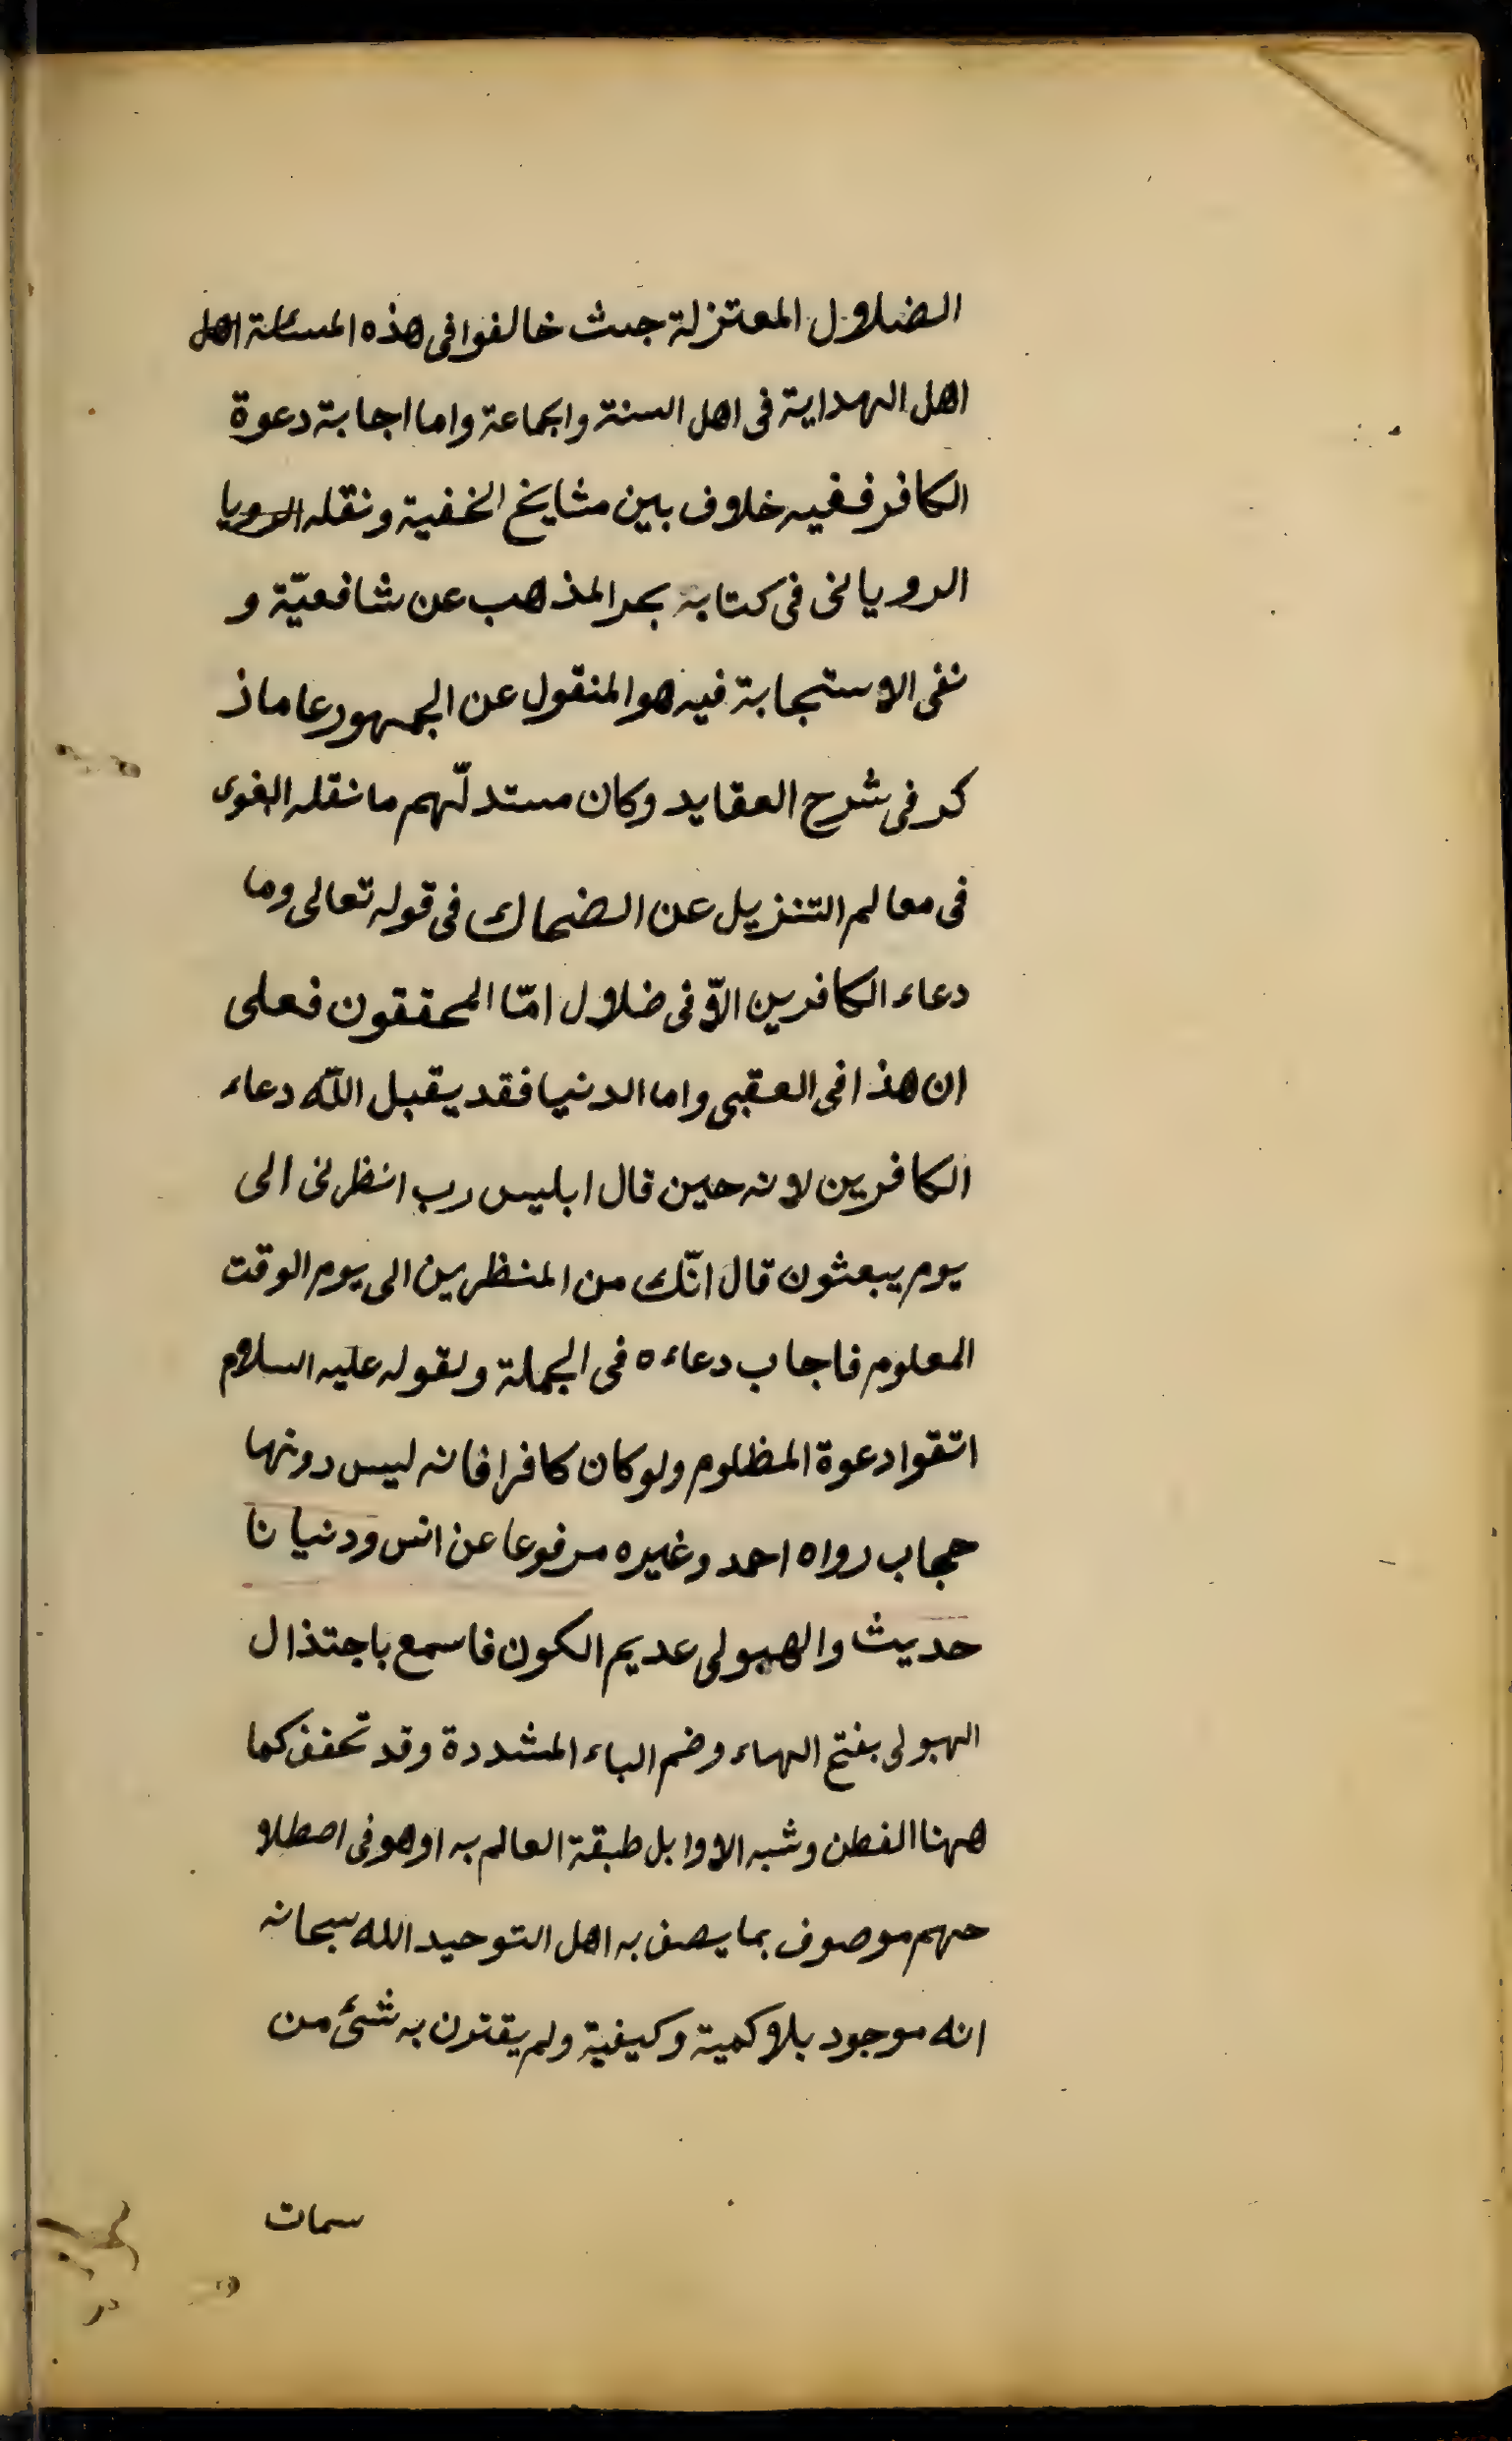 الضلال المعتزلة حيث خالفوا فى هذه المسئلة اهل
اهل الهداية فى اهل السنة والجماعة واما اجابة دعوة
الكافر ففيه خلاف بين مشايخ الخفية ونقله الرويا
الرويالنى فى كتابه بحر المذهب عن شافعيّة و
نفى الاستجابة فيه هو المنقول عن الجمهور عاماذ
كر فى شرح العقايد وكان مستدلّهم ما نقله البغوى
فى معالم التنزيل عن الضحاك فى قوله تعالى وما
دعاء الكافرين الّا فى ضلال امّا المحققون فعلى
ان هذا فى العقبى واما الدنيا فقد يقبل اللّه دعاء
الكافرين لانه حين قال ابليس رب انظرنى الى
يوم يبعثون قال انّك من المنظرين الى يوم الوقت
المعلوم فاجاب دعاءه فى الجملة ولقوله عليه السلام
اتقوا دعوة المظلوم ولو كان كافرا فانه ليس دونها
حجاب رواه احمد وغيره مرفوعا عن انس ودنيانا
حديث والهيولى عديم الكون فاسمع باجتذال
الهيولى بفتح الهاء وضم الباء المشددة وقد تخفف كما
ههنا الفطن وشبه الاوايل طبقة العالم به او هو فى اصطلا
حهم موصوف بما يصف به اهل التوحيد الله سبحانه
انه موجود بلا كمية وكيفية ولم يقترن به شئ من
سمات